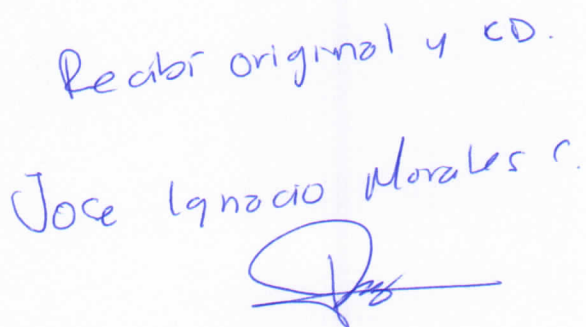 Recibí original y CD.
Jose Ignacio Morales C.